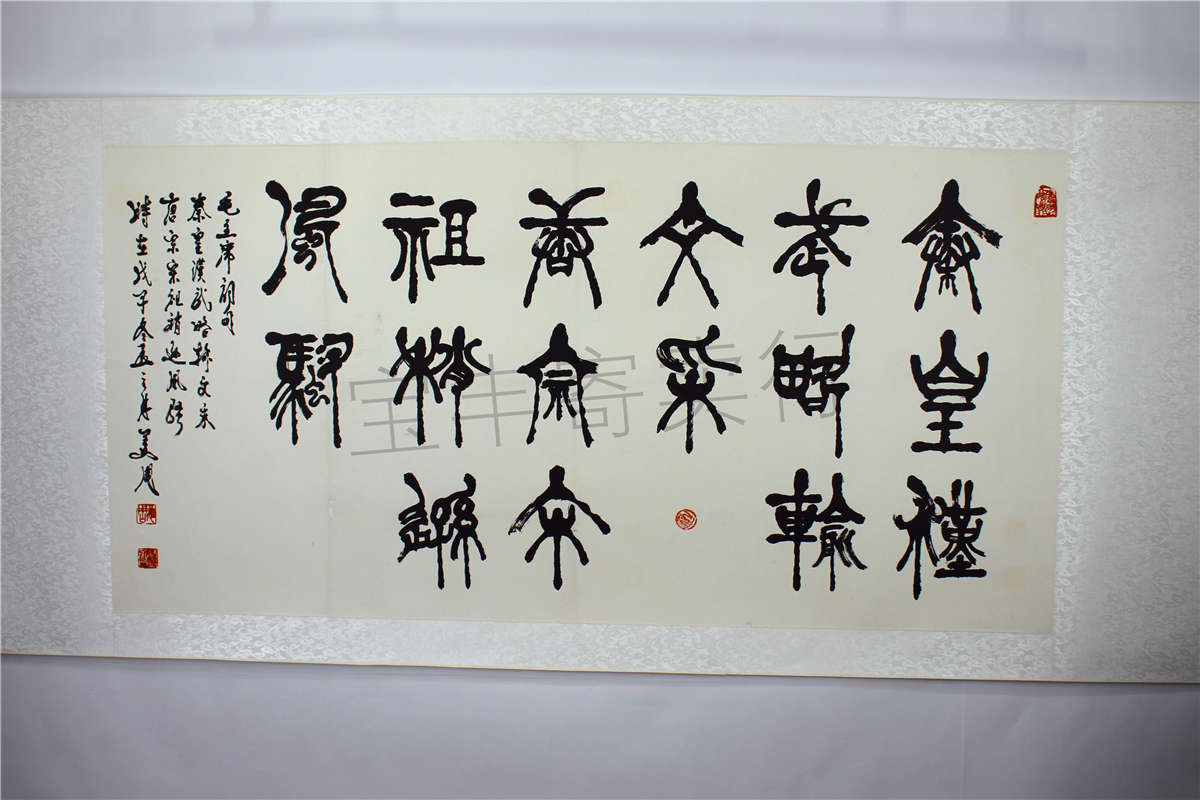 秦皇漢
武略輸
文采
唐宗宋
祖稍遜
風騷
毛主席詞句
秦皇漢武略輸文采
唐宗宋祖稍遜風騷
時在戊午冬
宝丰寄卖行